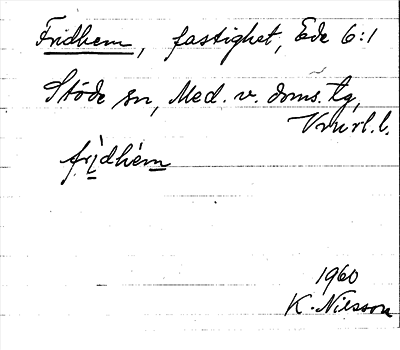 Fridhem, fastighet, Ede 6:1
Stöde sn, Med. v. doms. tg,
Vnrl. l.
frìdhém
1960
K. Nilsson